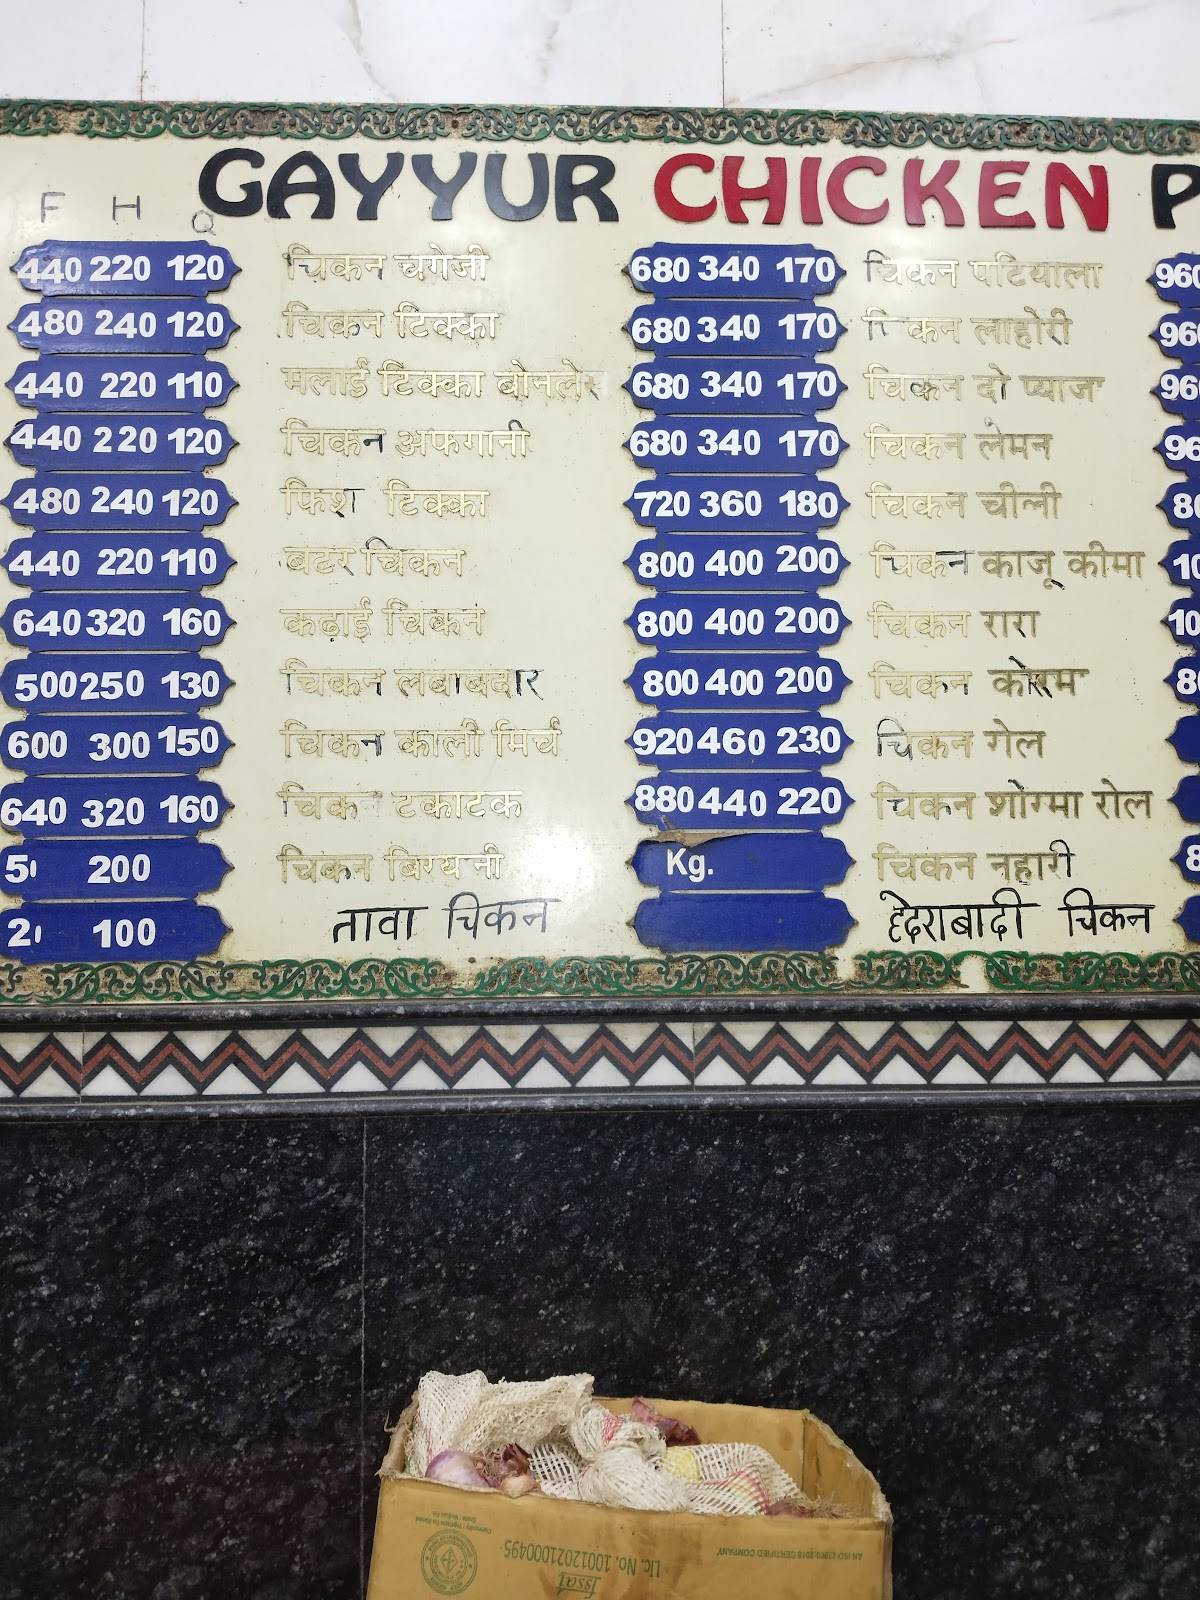 GAYYUR CHICKEN P
F H Q
440 220 120 चिकन चंगेजी 680 340 170 चिकन पटियाला 960
480 240 120 चिकन टिक्का 680 340 170 चिकन लाहोरी 960
440 220 110 मलाई टिक्का बोनलेस 680 340 170 चिकन दो प्याजा 960
440 220 120 चिकन अफगानी 680 340 170 चिकन लेमन 96
480 240 120 फिश टिक्का 720 360 180 चिकन चीली 80
440 220 110 बटर चिकन 800 400 200 चिकन काजू कीमा 10
640 320 160 कढ़ाई चिकन 800 400 200 चिकन रारा 10
500 250 130 चिकन लबाबदार 800 400 200 चिकन कोरमा 80
600 300 150 चिकन काली मिर्च 920 460 230 चिकन गेल
640 320 160 चिकन टकाटक 880 440 220 चिकन शोरमा रोल
5 200 चिकन बिरयानी Kg. चिकन नहारी 8
2 100 तावा चिकन हैदराबादी चिकन
AN ISO 22000:2018 CERTIFIED COMPANY
fssai
Lic. No. 10012021000495